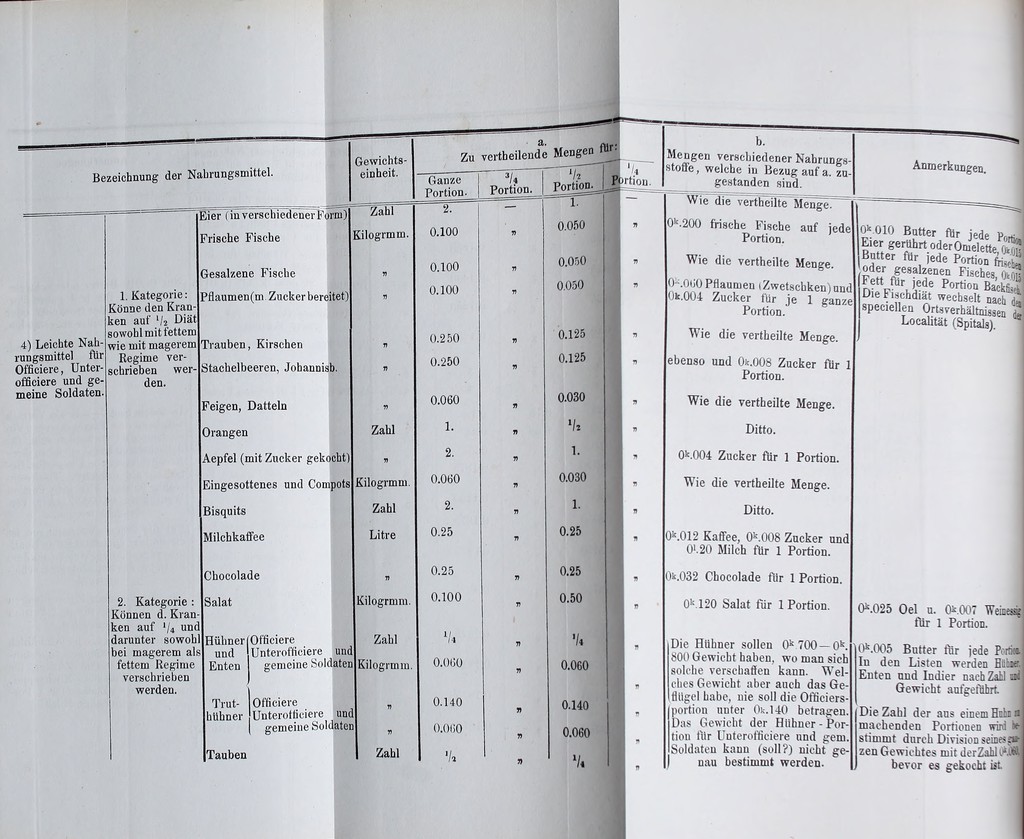 Bezeichnung der Nahrungsmittel.
Gewichts-
einheit.
a.
Zu vertheilende Mengen für:
Ganze
Portion.
3/4
Portion.
1/2
Portion.
1/4
Portion.
b.
Mengen verschiedener Nahrungs-
stoffe, welche in Bezug auf a. zu-
gestanden sind.
Anmerkungen.
4) Leichte Nah-
rungsmittel für
Officiere, Unter-
officiere und ge-
meine Soldaten.
1. Kategorie:
Könne den Kran-
ken auf 1/2 Diät
sowohl mit fettem
wie mit magerem
Regime ver-
schrieben wer-
den.
Eier (in verschiedener Form) Zahl 2. — 1. — Wie die vertheilte Menge.
Frische Fische Kilogrmm. 0.100 „ 0.050 „ 0k.200 frische Fische auf jede
Portion.
Gesalzene Fische „ 0.100 „ 0.050 „ Wie die vertheilte Menge.
Pflaumen (m. Zucker bereitet) „ 0.100 „ 0.050 „ 0k.060 Pflaumen (Zwetschken) und
0k.004 Zucker für je 1 ganze
Portion.
Trauben, Kirschen „ 0.250 „ 0.125 „ Wie die vertheilte Menge.
Stachelbeeren, Johannisb. „ 0.250 „ 0.125 „ ebenso und 0k.008 Zucker für 1
Portion.
Feigen, Datteln „ 0.060 „ 0.030 „ Wie die vertheilte Menge.
Orangen Zahl 1. „ 1/2 „ Ditto.
Aepfel (mit Zucker gekocht) „ 2. „ 1. „ 0k.004 Zucker für 1 Portion.
Eingesottenes und Compots Kilogrmm. 0.060 „ 0.030 „ Wie die vertheilte Menge.
Bisquits Zahl 2. „ 1. „ Ditto.
Milchkaffee Litre 0.25 „ 0.25 „ 0k.012 Kaffee, 0k.008 Zucker und
0l.20 Milch für 1 Portion.
Chocolade „ 0.25 „ 0.25 „ 0k.032 Chocolade für 1 Portion.
0k.010 Butter für jede Portion
Eier gerührt oder Omelette, 0k.015
Butter für jede Portion frischen
oder gesalzenen Fisches, 0k.015
Fett für jede Portion Backfisch.
Die Fischdiät wechselt nach den
speciellen Ortsverhältnissen der
Localität (Spitals).
2. Kategorie:
Können d. Kran-
ken auf 1/4 und
darunter sowohl
bei magerem als
fettem Regime
verschrieben
werden.
Salat Kilogrmm. 0.100 „ 0.50 „ 0k.120 Salat für 1 Portion.
0k.025 Oel u. 0k.007 Weinessig
für 1 Portion.
Hühner
und
Enten
Officiere Zahl 1/4 „ 1/4 „
Unterofficiere und
gemeine Soldaten Kilogrmm. 0.060 „ 0.060 „
Trut-
hühner
Officiere „ 0.140 „ 0.140 „
Unterofficiere und
gemeine Soldaten „ 0.060 „ 0.060 „
Tauben Zahl 1/2 „ 1/4 „
Die Hühner sollen 0k.700—0k.
800 Gewicht haben, wo man sich
solche verschaffen kann. Wel-
ches Gewicht aber auch das Ge-
flügel habe, nie soll die Officiers-
portion unter 0k.140 betragen.
Das Gewicht der Hühner-Por-
tion für Unterofficiere und gem.
Soldaten kann (soll?) nicht ge-
nau bestimmt werden.
0k.005 Butter für jede Portion.
In den Listen werden Hühner,
Enten und Indier nach Zahl und
Gewicht aufgeführt.
Die Zahl der aus einem Huhn zu
machenden Portionen wird be-
stimmt durch Division seines gan-
zen Gewichtes mit der Zahl 0k.060,
bevor es gekocht ist.